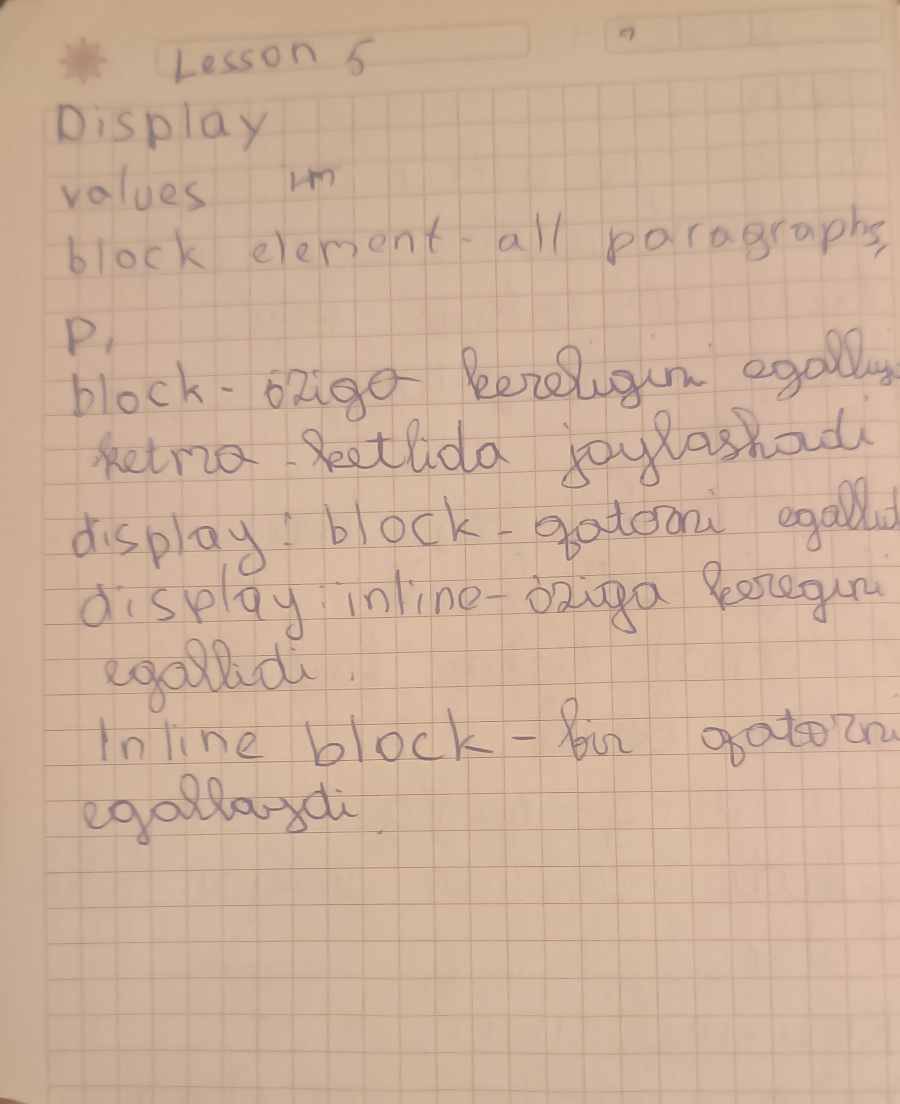 Lesson 5
Display
values
block element - all paragraphs,
P,
block - öziga kerelugini
ketma - ketlida joylashadi
display: block - qatorni egallid
display: inline - öziga keregini
egallidi.
Inline block - bir qatorni
egallaydi.